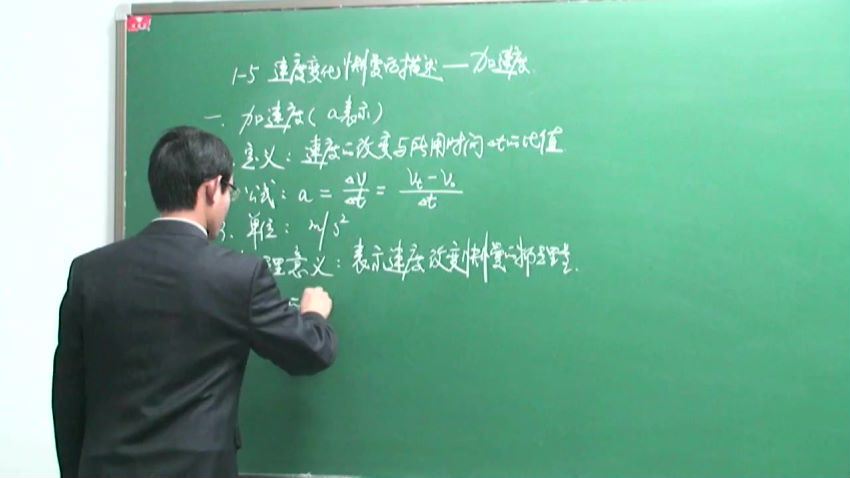 1-5 速度变化快慢的描述——加速度
一. 加速度(a表示)
定义: 速度的改变与所用时间Δt的比值
公式: a = Δv/Δt = (Vt - V₀)/Δt
3. 单位: m/s²
理意义: 表示速度改变快慢的物理量.